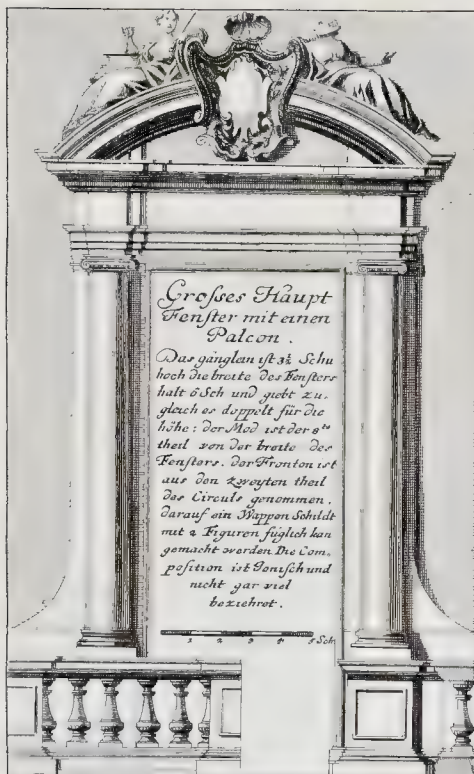 Großes Haupt
Fenster mit einen
Palcon.
Das gänglein ist 3½ Schu
hoch die breite des Fensters
halt 6 Sch und giebt zu-
gleich es doppelt für die
höhe: der Mod ist der 8te
theil von der breite des
Fensters. der Fronton ist
aus den zweyten theil
des Circuls genommen.
darauf ein Wappen Schildt
mit 2 Figuren füglich kan
gemacht werden Die Com-
position ist Jonisch und
nicht gar viel
beziehrot.
1 2 3 4 5 Sch.